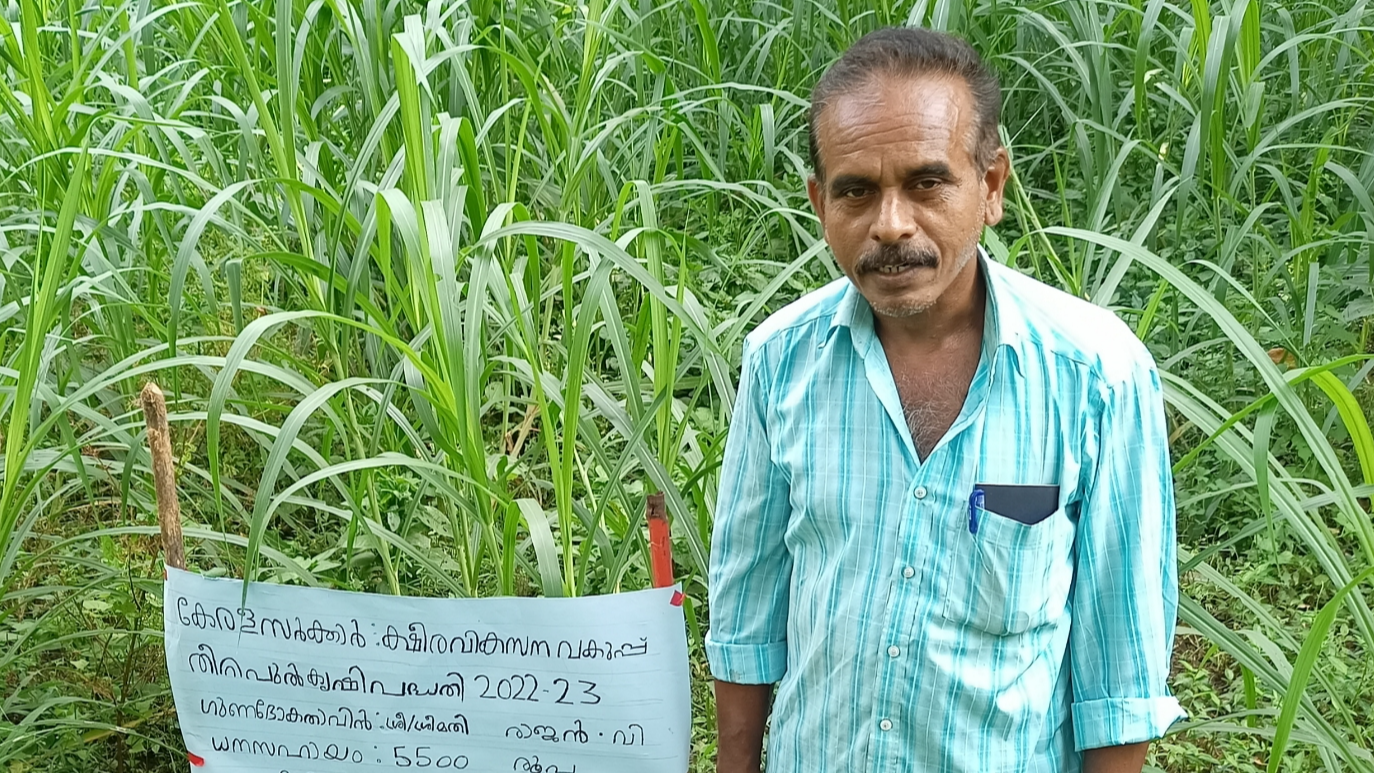 കേരളസർക്കാർ :ക്ഷീരവികസന വകുപ്പ്
തീറ്റപുൽകൃഷി പദ്ധതി 2022-23
ഗുണഭോക്താവിൻ :ശ്രീ/ശ്രീമതി രാജൻ . വി
ധനസഹായം : 5500 രൂപ